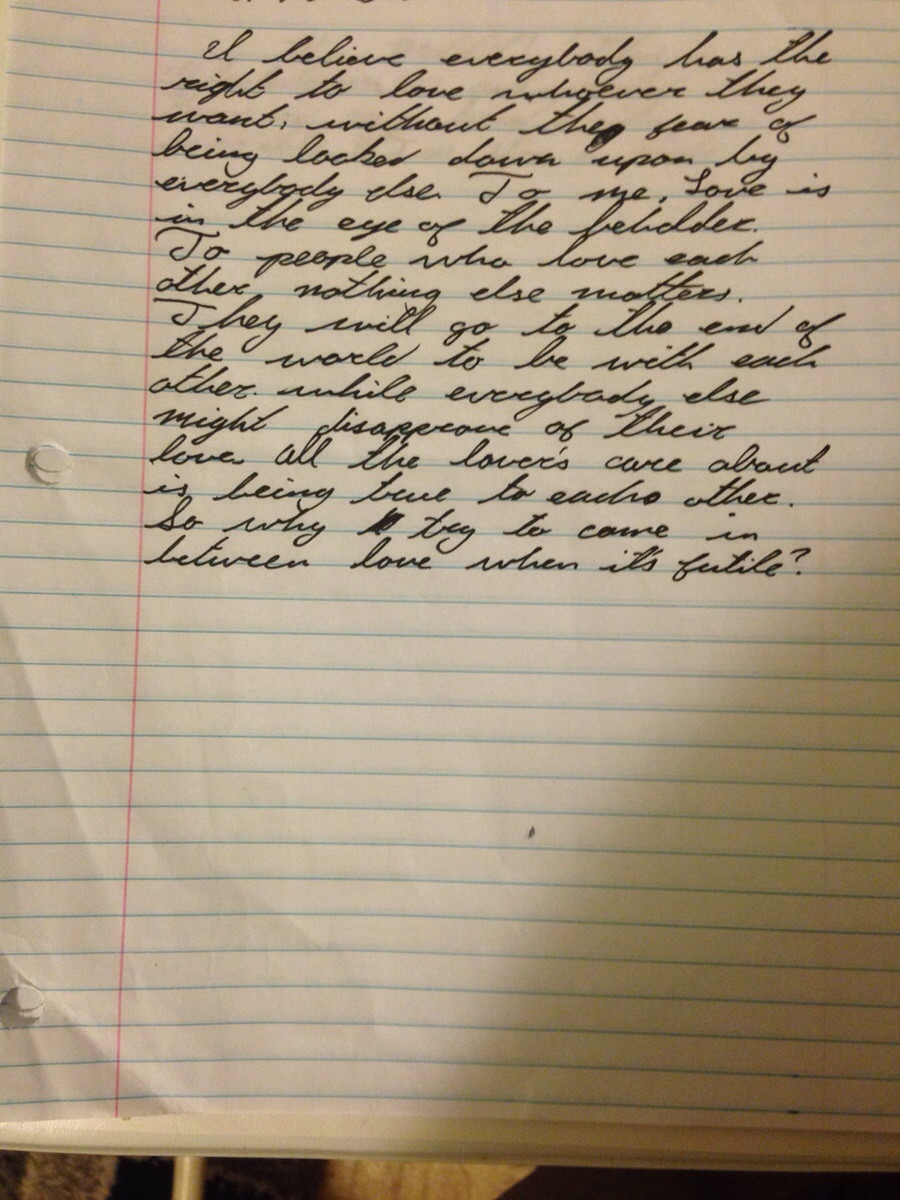 I believe everybody has the
right to love whoever they
want, without the fear of
being looked down upon by
everybody else. To me, Love is
in the eye of the beholder.
To people who love each
other nothing else matters.
They will go to the end of
the world to be with each
other. while everybody else
might disapprove of their
love. All the lover's care about
is being true to each other.
So why try to come in
between love when it's futile?